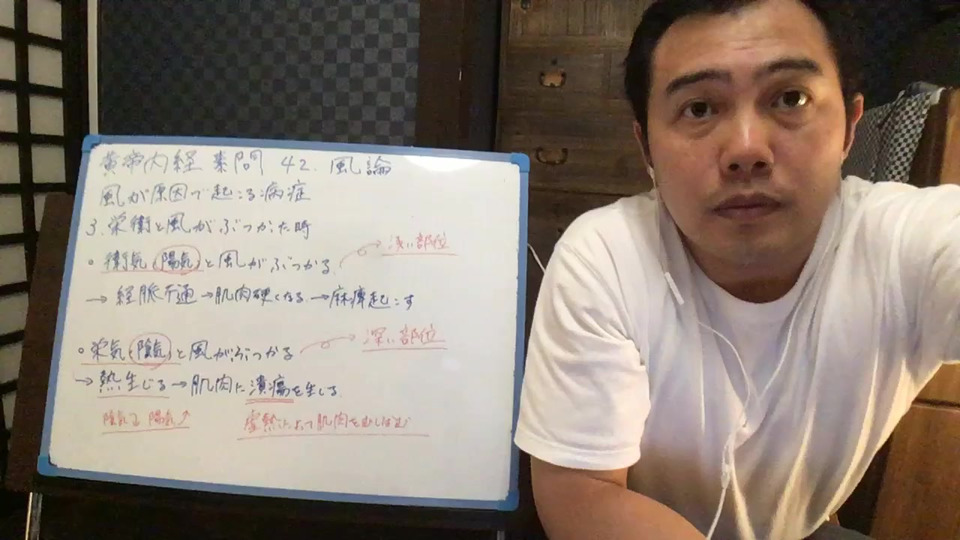 黄帝内経 素問 42. 風論
風が原因で起こる病症
3. 栄衛と風がぶつかた時
○ 衛気(陽気)と風がぶつかる → 浅い部位
→ 経脈不通 → 肌肉硬くなる → 麻痺起こす
○ 栄気(陰気)と風がぶつかる → 深い部位
→ 熱生じる → 肌肉に潰瘍を生じる
陰気↓ 陽気↑ 鬱熱によって肌肉をむしばむ